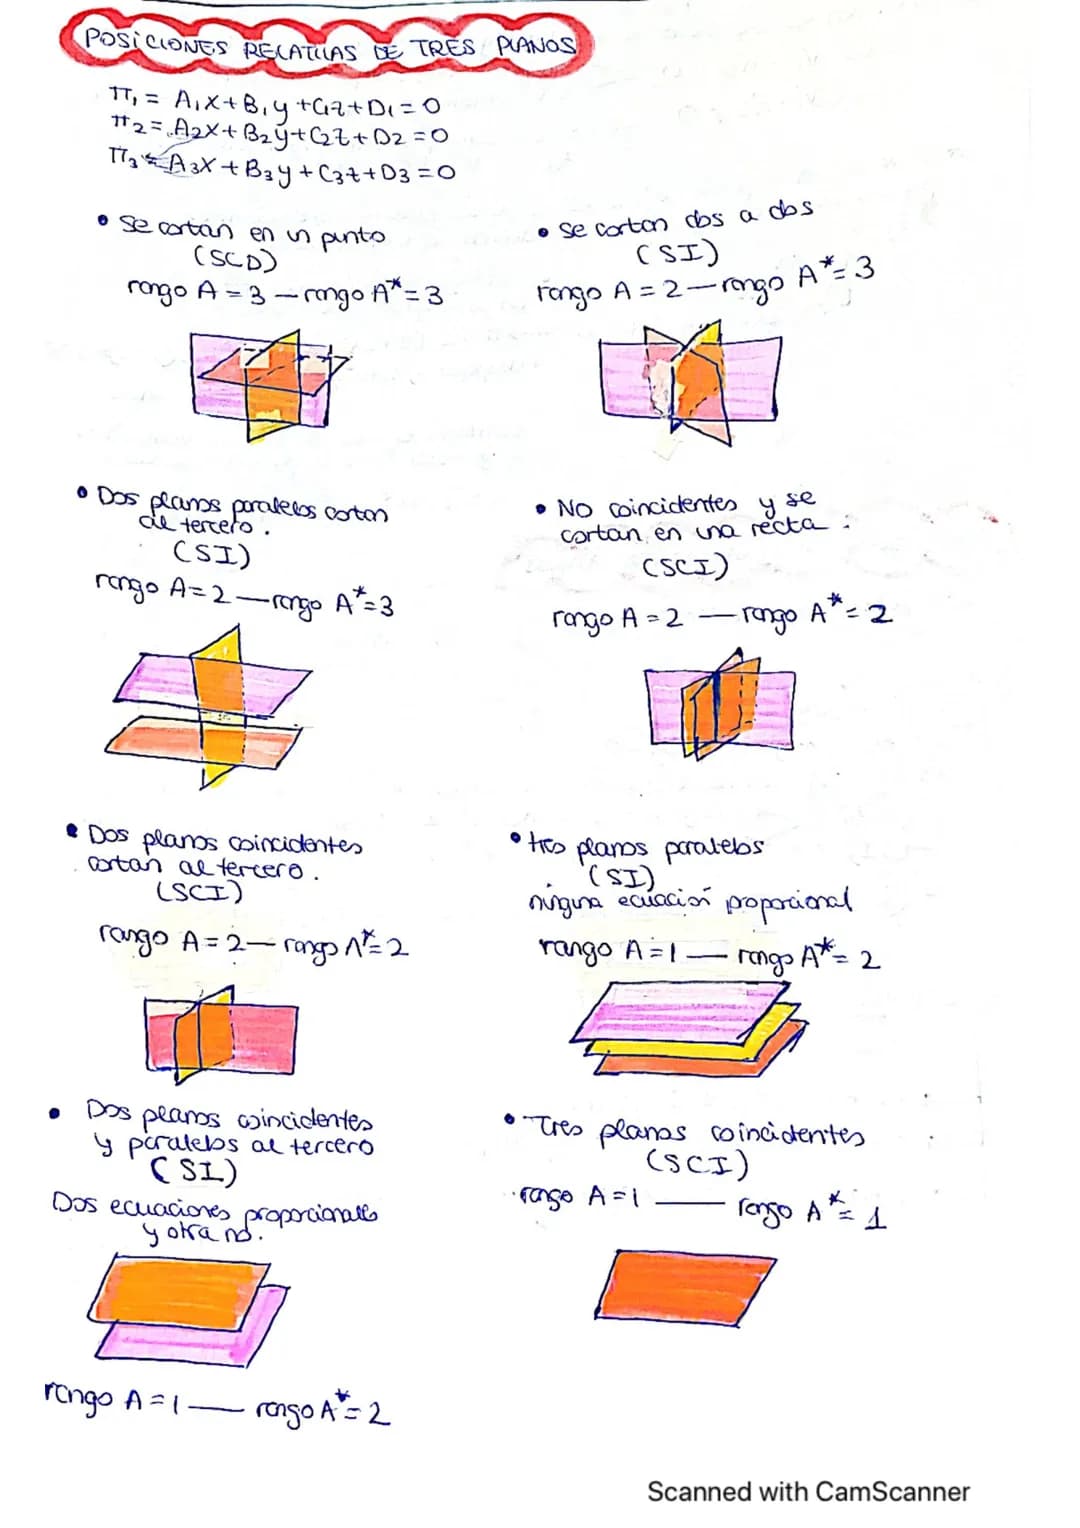 POSICIONES RELATIVAS DE TRES PLANOS
π₁ = A₁x + B₁y + C₁z + D₁ = 0
π₂ = A₂x + B₂y + C₂z + D₂ = 0
π₃ = A₃x + B₃y + C₃z + D₃ = 0
• Se cortan en un punto
(SCD)
rango A = 3 — rango A* = 3
• Se cortan dos a dos
(SI)
rango A = 2 — rango A* = 3
• Dos planos paralelos cortan
al tercero.
(SI)
rango A = 2 — rango A* = 3
• No coincidentes y se
cortan en una recta.
(SCI)
rango A = 2 — rango A* = 2
• Dos planos coincidentes
cortan al tercero.
(SCI)
rango A = 2 — rango A* = 2
• tres planos paralelos
(SI)
ninguna ecuación proporcional
rango A = 1 — rango A* = 2
• Dos planos coincidentes
y paralelos al tercero
(SI)
Dos ecuaciones proporcionales
y otra no.
rango A = 1 — rango A* = 2
• Tres planos coincidentes
(SCI)
rango A = 1 — rango A* = 1
Scanned with CamScanner